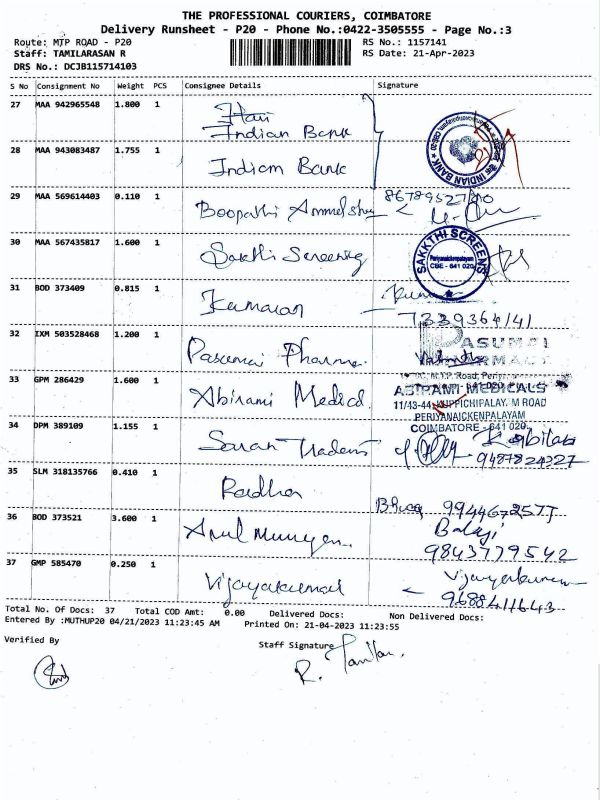 THE PROFESSIONAL COURIERS, COIMBATORE
Delivery Runsheet - P20 - Phone No.:0422-3505555 - Page No.:3
Route: MTP ROAD - P20
RS No.: 1157141
Staff: TAMILARASAN R
RS Date: 21-Apr-2023
DRS No.: DCJB115714103
S No Consignment No Weight PCS Consignee Details Signature
27 MAA 942965548 1.800 1 Hari
Indian Bank
28 MAA 943083487 1.755 1 Indian Bank
INDIAN BANK
29 MAA 569614403 0.110 1 Boopathi
30 MAA 567435817 1.600 1 Sakthi Screening
SAKKTHI SCREENS
Periyanaickenpalayam
CBE - 641 020
31 BOD 373409 0.815 1 Kumaran
7339364141
32 IXM 503528468 1.200 1 Pasumai Pharma
PASUMAI
33 GPM 286429 1.600 1 Abirami Medical
ABIRAMI MEDICALS
11/43-44, KUPPICHIPALAY. M ROAD
PERIYANAICKENPALAYAM
COIMBATORE - 641 020.
34 DPM 389109 1.155 1 Saran Traders
9487824327
35 SLM 318135766 0.410 1 Radha
36 BOD 373521 3.600 1 Arul Murugan
Balaji
9843779542
37 GMP 585470 0.250 1 Vijayakumar
Vijayakumar
9688411643
Total No. Of Docs: 37 Total COD Amt: 0.00 Delivered Docs: Non Delivered Docs:
Entered By :MUTHUP20 04/21/2023 11:23:45 AM Printed On: 21-04-2023 11:23:55
Verified By
Staff Signature